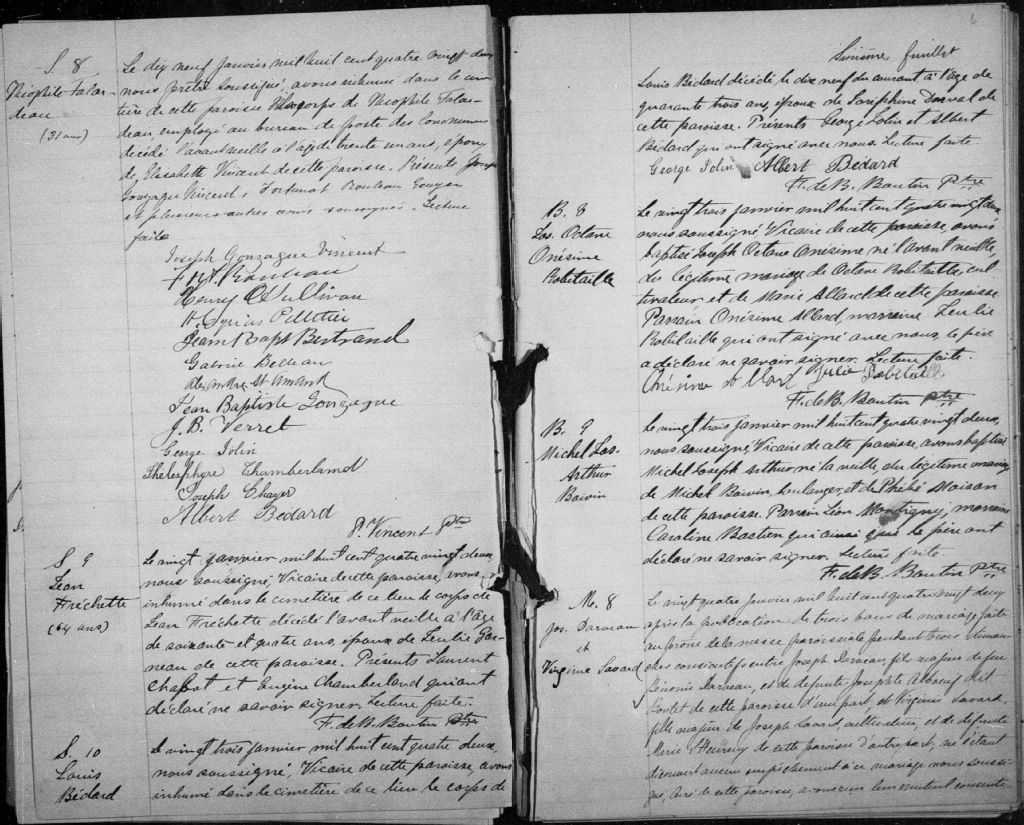 S. 8
Théophile Falar-
deau
(31 ans)
Le dix neuf janvier mil huit cent quatre vingt deux
nous prêtre soussigné, avons inhumé dans le cime
tière de cette paroisse le corps de Théophile Falar-
deau, employé au bureau de poste des Communes
décédé l'avant veille à l'age de trente un ans, époux
de Elisabeth Vincent de cette paroisse. Présents Joseph
Gonzague Vincent, Fortunat Rouleau
et plusieurs autres amis soussignés. Lecture
faite
Joseph Gonzague Vincent
F. Rouleau
Henry O'Sullivan
H. Cyrias Pelletier
Jean Bapt Bertrand
Gabriel Belleau
Alexandre St-Amand
Jean Baptiste Gonzague
J. B. Verret
George Jolin
Thélesphore Chamberland
Joseph
Albert Bédard
P. Vincent Ptre
S 9
Jean
Fréchette
(64 ans)
Le vingt janvier mil huit cent quatre vingt deux
nous soussigné, Vicaire de cette paroisse, avons
inhumé dans le cimetière de ce lieu le corps de
Jean Fréchette décédé l'avant veille à l'âge
de soixante et quatre ans, époux de Leulie Gar-
neau de cette paroisse. Présents Laurent
Chabot et Eugène Chamberland qui ont
déclaré ne savoir signer. Lecture faite.
F. de B. Boutin Ptre
S. 10
Louis
Bédard
Le vingt trois janvier mil huit cent quatre deux,
nous soussigné, Vicaire de cette paroisse, avons
inhumé dans le cimetière de ce lieu le corps de
6
Sixième feuillet
Louis Bédard décédé le dix neuf du courant à l'âge de
quarante trois ans, époux de Joséphine Dorval de
cette paroisse. Présents George Jolin et Albert
Bédard qui ont signé avec nous. Lecture faite.
George Jolin Albert Bédard
F. de B. Boutin Ptre
B. 8
Jos. Octave
Onésime
Robitaille
Le vingt trois janvier mil huit cent quatre vingt deux
nous soussigné Vicaire de cette paroisse, avons
baptisé Joseph Octave Onésime né l'avant veille,
du légitime mariage de Octave Robitaille, cul
tivateur et de Marie Allard de cette paroisse
Parrain Onésime Allard, marraine Leulie
Robitaille qui ont signé avec nous, le père
a déclaré ne savoir signer. Lecture faite.
Onésime Allard Julie Robitaille
F. de B. Boutin Ptre
B. 9
Michel Jos.
Arthur
Boivin
Le vingt trois janvier mil huit cent quatre vingt deux,
nous soussigné, Vicaire de cette paroisse, avons baptisé
Michel Joseph Arthur, né la veille, du légitime mariage
de Michel Boivin, boulanger, et de Phébé Moisan
de cette paroisse. Parrain Léon Montigny, marraine
Caroline Bastien qui ainsi que le père ont
déclaré ne savoir signer. Lecture faite.
F. de B. Boutin Ptre
M. 8
Jos. Darveau
et
Virginie Savard
Le vingt quatre Janvier mil huit cent quatre vingt deux
après la publication de trois bans de mariage faite
au prône de la messe paroissiale pendant trois diman
ches consécutifs entre Joseph Darveau, fils majeur de feu
Bénonie Darveau, et de défunte Josephte dit
de cette paroisse d'une part, et Virginie Savard,
fille majeure de Joseph Savard, cultivateur, et de défunte
Marie de cette paroisse d'autre part, ne s'étant
découvert aucun empêchement à ce mariage nous soussi-
gné, Curé de cette paroisse, avons reçu leur mutuel consente